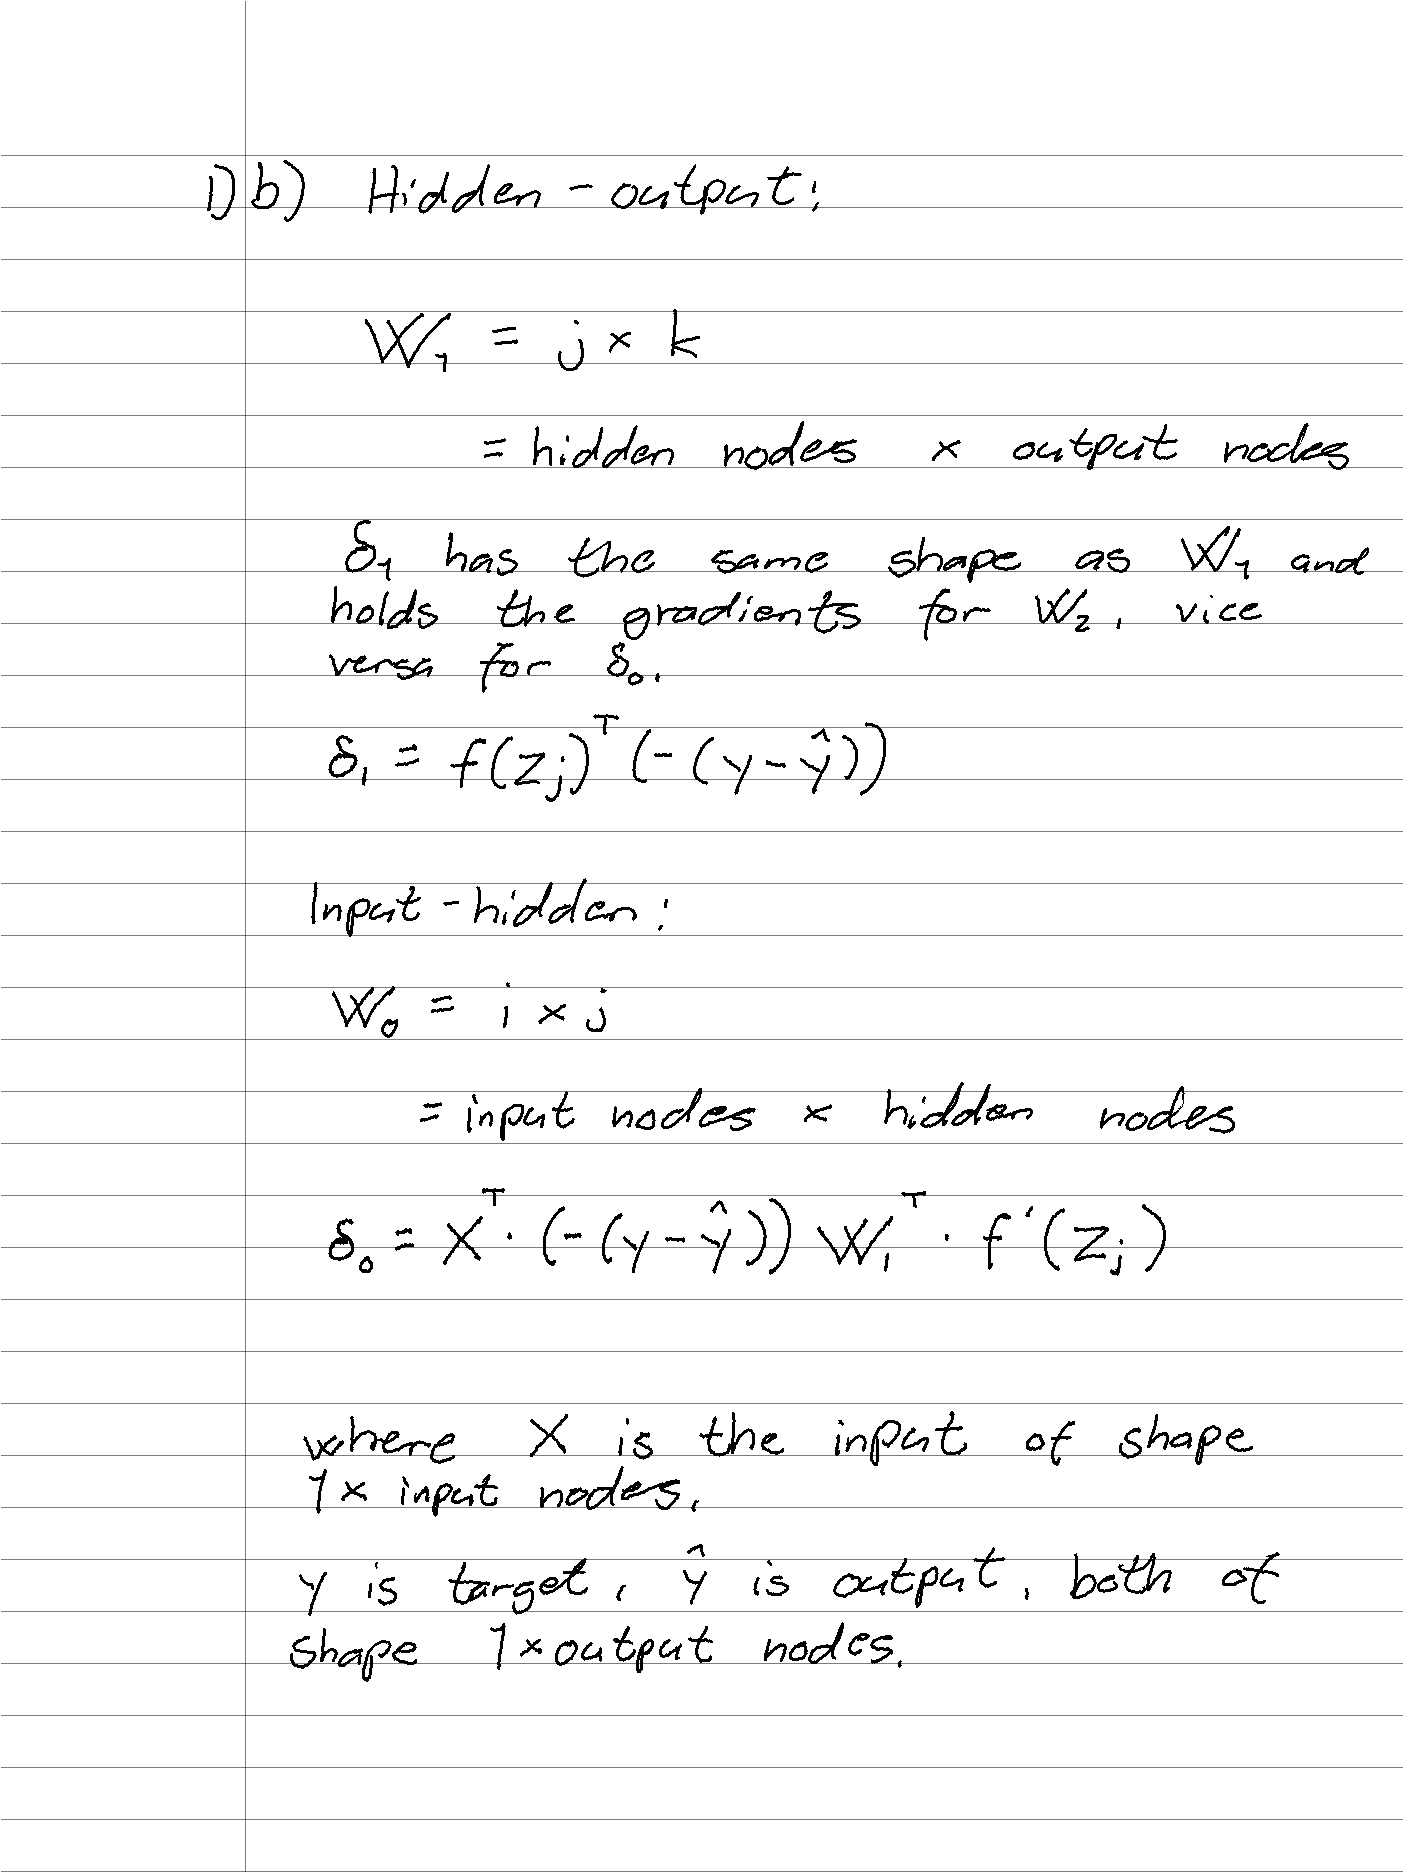 1) b) Hidden - output:
W₁ = j × k
= hidden nodes × output nodes
δ₁ has the same shape as W₁ and
holds the gradients for W₂, vice
versa for δ₀.
δ₁ = f(zⱼ)ᵀ (-(y-ŷ))
Input - hidden:
W₀ = i × j
= input nodes × hidden nodes
δ₀ = Xᵀ · (-(y-ŷ)) W₁ᵀ · f'(zⱼ)
where X is the input of shape
1× input nodes.
y is target, ŷ is output, both of
shape 1× output nodes.